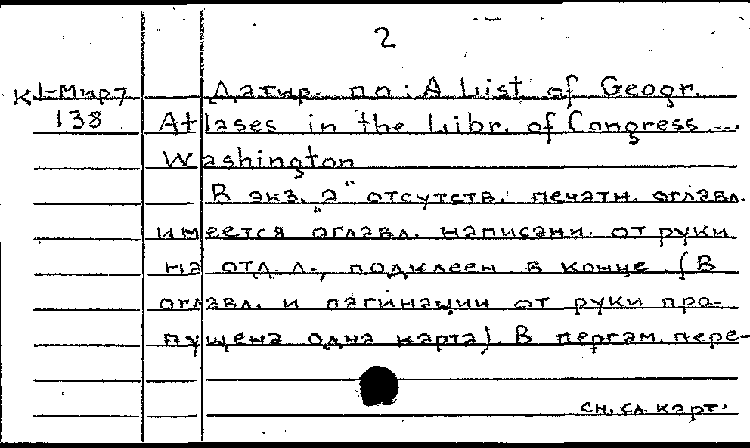 2
К1-Мир7 Датир. по: A List of Geogr.
138 Atlases in the Libr. of Congress ...
Washington
В экз. "а" отсутств. печатн. оглавл.
имеется оглавл. написанн. от руки
на отд. л., подклеен в конце. (В
оглавл. и пагинации от руки про-
пущена одна карта). В пергам. пере-
см. сл. карт.